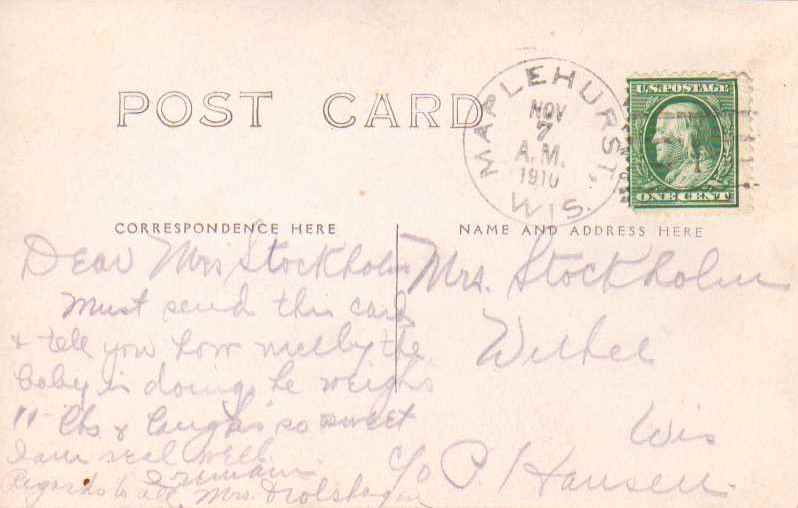 POST CARD
MAPLEHURST,
NOV
7
A.M.
1910
WIS.
U.S. POSTAGE
ONE CENT
CORRESPONDENCE HERE
Dear Mrs Stockholm
Must send this card
& tell you how the
baby is doing, he weighs
11 lbs & laughs so sweet
I am real well.
I remain
Regards to all, Mrs.
NAME AND ADDRESS HERE
Mrs. Stockholm
Withee
Wis
c/o P. Hansen.